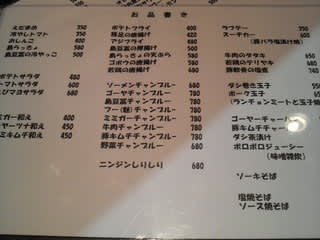 お品書き
えだまめ 350
冷やしトマト 350
おしんこ 380
島らっきょ 500
島豆冨の冷やっこ 380
ポテトサラダ 480
トマトサラダ 480
ツナサラダ 680
ミミガー和え 400
ゴーヤーツナ和え 450
豚ミミキムチ和え 450
ポテトフライ
豚足の唐揚げ
アジフライ
島豆冨の厚揚げ
島らっきょの天ぷら
ゴボウの唐揚げ
若鶏の唐揚げ
ソーメンチャンプルー 680
ゴーヤチャンプルー 780
島豆冨チャンプルー 780
フー(麩)チャンプルー 780
ミミガーチャンプルー 780
牛肉チャンプルー 780
豚キムチチャンプルー 780
野菜チャンプルー 680
ニンジンしりしり 680
ラフテー 750
スーチカー 680
(豚バラ塩漬け焼)
牛肉のタタキ
若鶏のテリヤキ 680
豚軟骨の塩煮
ダシ巻き玉子
ポーク玉子
(ランチョンミートと玉子焼
ゴーヤーチャー
豚キムチチャー
ダシ茶漬け
ポロポロジューシー
(味噌雑炊)
ソーキそば
塩焼そば
ソース焼そば